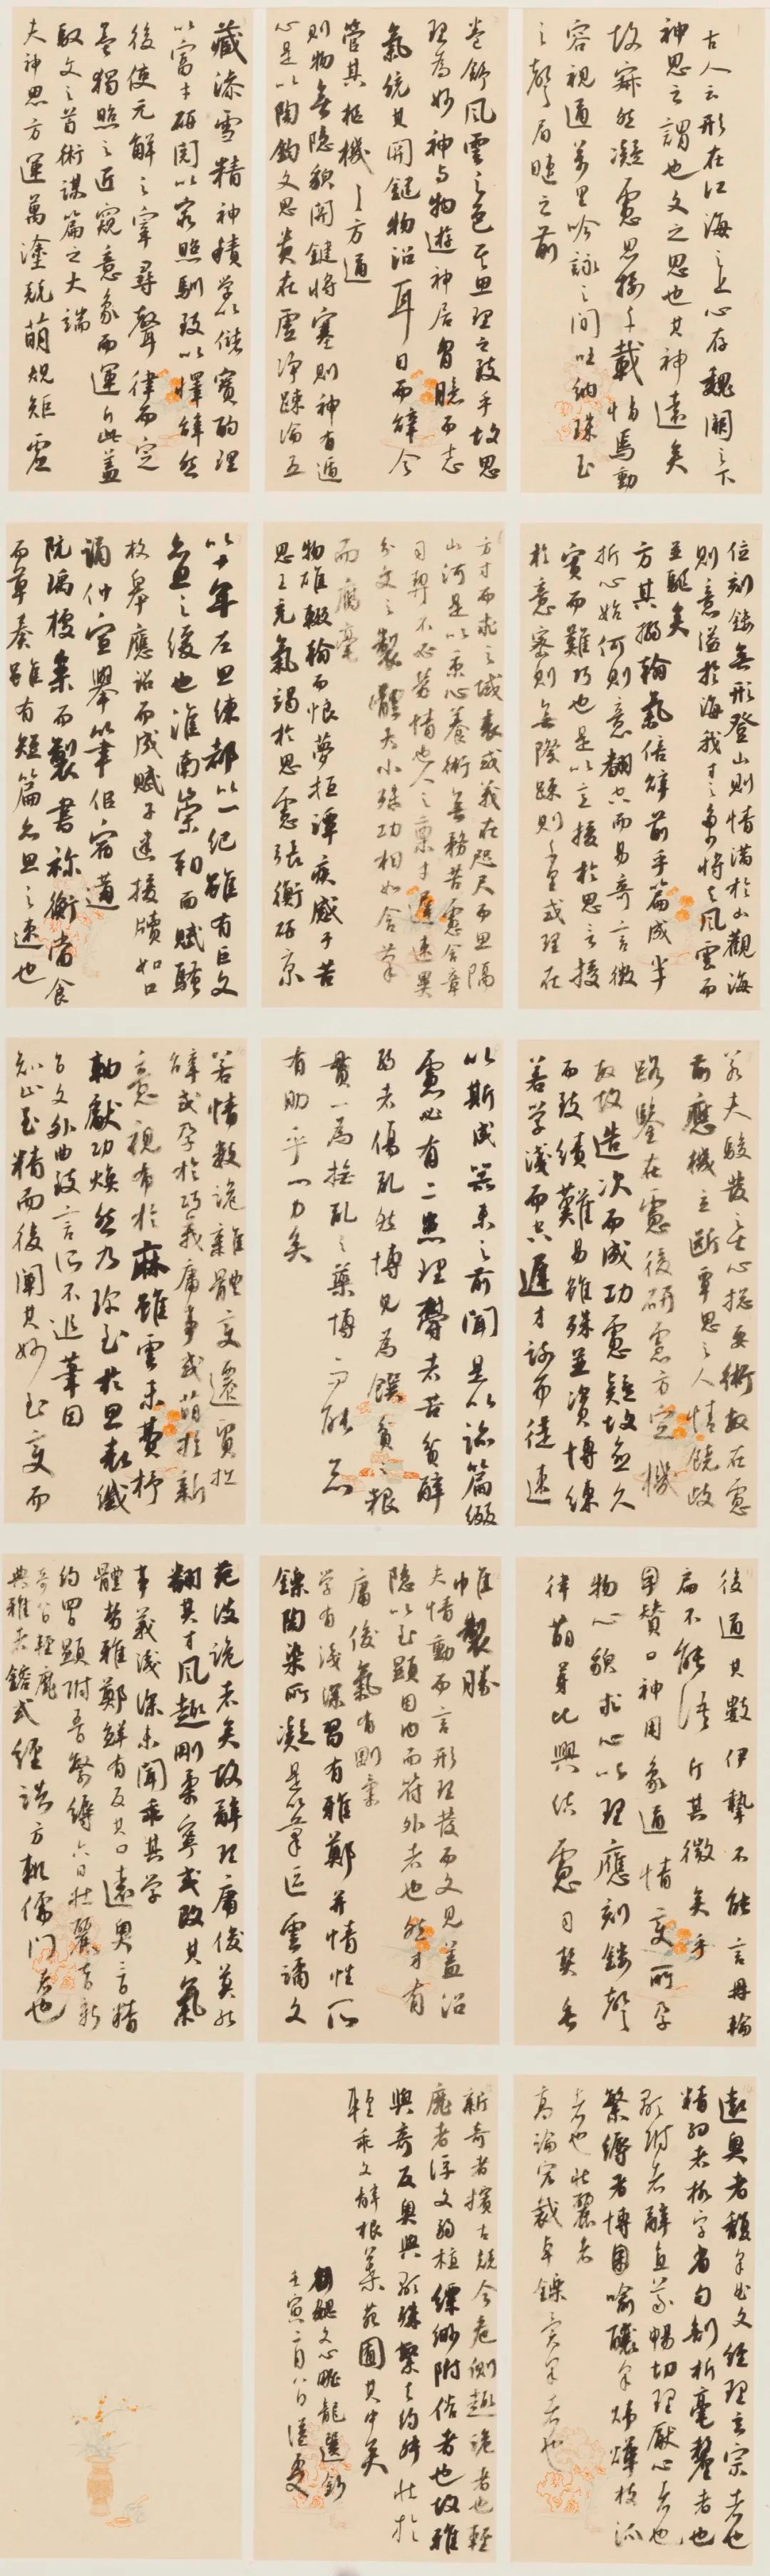 古人云形在江海之上心存魏闕之下
神思之謂也文之思也其神遠矣
故寂然凝慮思接千載悄焉動
容視通萬里吟詠之間吐納珠玉
之聲眉睫之前
卷舒風雲之色其思理之致乎故思
理為妙神與物遊神居胸臆而志
氣統其關鍵物沿耳目而辭令
管其樞機〻方通
則物無隱貌關鍵將塞則神有遁
心是以陶鈞文思貴在虛淨疎瀹五
藏澡雪精神積學以儲寶酌理
以富才研閱以窮照馴致以懌辭然
後使元解之宰尋聲律而定
墨獨照之匠窺意象而運斤此蓋
馭文之首術謀篇之大端
夫神思方運萬塗競萌規矩虛
位刻鏤無形登山則情滿於山觀海
則意溢於海我才之多少將與風雲而
並驅矣
方其搦翰氣倍辭前乎篇成半
折心始何則意翻空而易奇言徵
實而難巧也是以意授於思言授
於意密則無際疎則千里或理在
方寸而求之域表或義在咫尺而思隔
山河是以秉心養術無務苦慮含章
司契不必勞情也人之稟才遲速異
分文之製體大小殊功相如含筆
而腐毫
揚雄輟翰而驚夢桓譚疾感于苦
思王充氣竭於思慮張衡研京
以十年左思練都以一紀雖有巨文
亦思之緩也淮南崇朝而賦騷
枚皋應詔而成賦子建援牘如口
誦仲宣舉筆似宿遘
阮瑀據案而製書禰衡當食
而草奏雖有短篇亦思之速也
若夫駿發之士心總要術敏在慮
前應機立斷覃思之人情饒歧
路鑒在慮後研慮方定機
敏故造次而成功慮疑故愈久
而致績難易雖殊並資博練
若學淺而空遲才疎而徒速
以斯成器未之前聞是以臨篇綴
慮必有二患理鬱者苦貧辭
溺者傷亂然博見為饋貧之糧
貫一為拯亂之藥博而能一亦
有助乎心力矣
若情數詭雜體變遷貿拙
辭或孕於巧義庸事或萌於新
意視布於麻雖雲未費杼
軸獻功煥然乃珍至於思表纖
旨文外曲致言所不追筆固
知止至精而後闡其妙至變而
後通其數伊摯不能言鼎輪
扁不能語斤其微矣乎
贊曰神用象通情變所孕
物心貌求心以理應刻鏤聲
律萌芽比興結慮司契垂
帷製勝
夫情動而言形理發而文見蓋沿
隱以至顯因內而符外者也然才有
庸俊氣有剛柔
學有淺深習有雅鄭並情性所
鑠陶染所凝是以筆區雲譎文
苑波詭者矣故辭理庸俊莫能
翻其才風趣剛柔寧或改其氣
事義淺深未聞乖其學
體勢雅鄭鮮有反其遠奧精
約四曰顯附五曰繁縟六曰壯麗七曰新
奇八曰輕靡
典雅者鎔式經誥方軌儒門者也
遠奧者馥采典文經理玄宗者也
精約者核字省句剖析毫釐者也
顯附者辭直義暢切理厭心者也
繁縟者博喻釀采煒燁枝派
者也壯麗者
高論宏裁卓爍異采者也
新奇者擯古競今危側趣詭者也輕
靡者浮文弱植縹緲附俗者也故雅
與奇反奧與顯殊繁與約舛壯於
輕乖文辭根葉苑囿其中矣
劉勰文心雕龍選鈔
壬寅二月